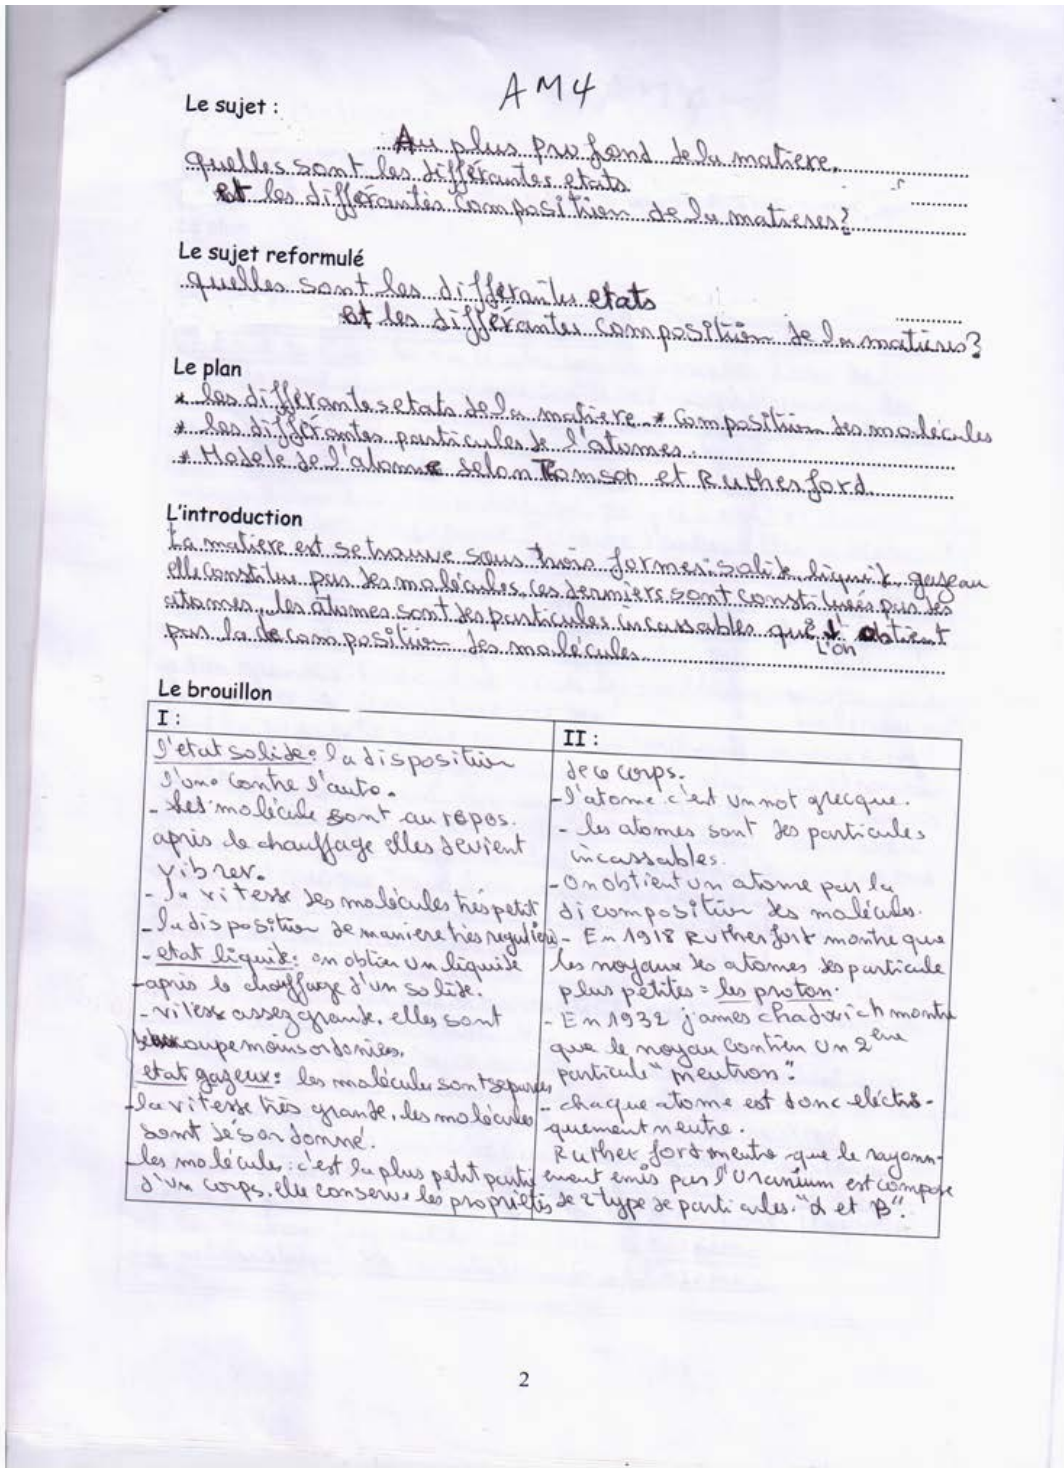 AM4
Le sujet :
Au plus profond de la matiere,
quelles sont les différantes etats
et les différantes composition de la matieres?
Le sujet reformulé
quelles sont les différantes etats
et les différantes composition de la matières?
Le plan
* les différantes etats de la matière * composition des molécules
* les différantes particules de l'atomes.
* Modele de l'atome selon Tomson et Rutherford
L'introduction
La matiere est se trouve sous trois formes: solide, liquide, gazeau
elle constitue par des molécules, ces derniers sont constituées par des
atomes, les atomes sont des particules incassables que L'on obtient
par la decomposition des molécules
Le brouillon
I :
l'etat solide: la disposition
l'une contre l'autre.
- Les molécule sont au repos.
après le chauffage elles devient
vibrer.
- la vitesse des molécules très petit
- la disposition de maniere très reguliere
- etat liquide: on obtien un liquide
- après le chauffage d'un solide.
- vitesse assez grande, elles sont
beaucoupe moins ordonies.
etat gazeux: les molécules sont separées
- la vitesse très grande, les molécules
sont désordonné.
- les molécules: c'est la plus petit parti
d'un corps, elle conserve les propriétés
II :
de ce corps.
- l'atome c'est un mot grecque.
- les atomes sont des particules
incassables.
- On obtient un atome par la
dicomposition des molécules.
- En 1918 Rutherfort montre que
les noyaux des atomes des particule
plus petites = les proton.
- En 1932 james chadwich montre
que le noyau contien un 2ème
particule "neutron".
- chaque atome est donc eléctri-
quement neutre.
Rutherford montre que le rayonn-
ement émis par l'Uranium est compose
de 2 type de particules. "α et β".
2